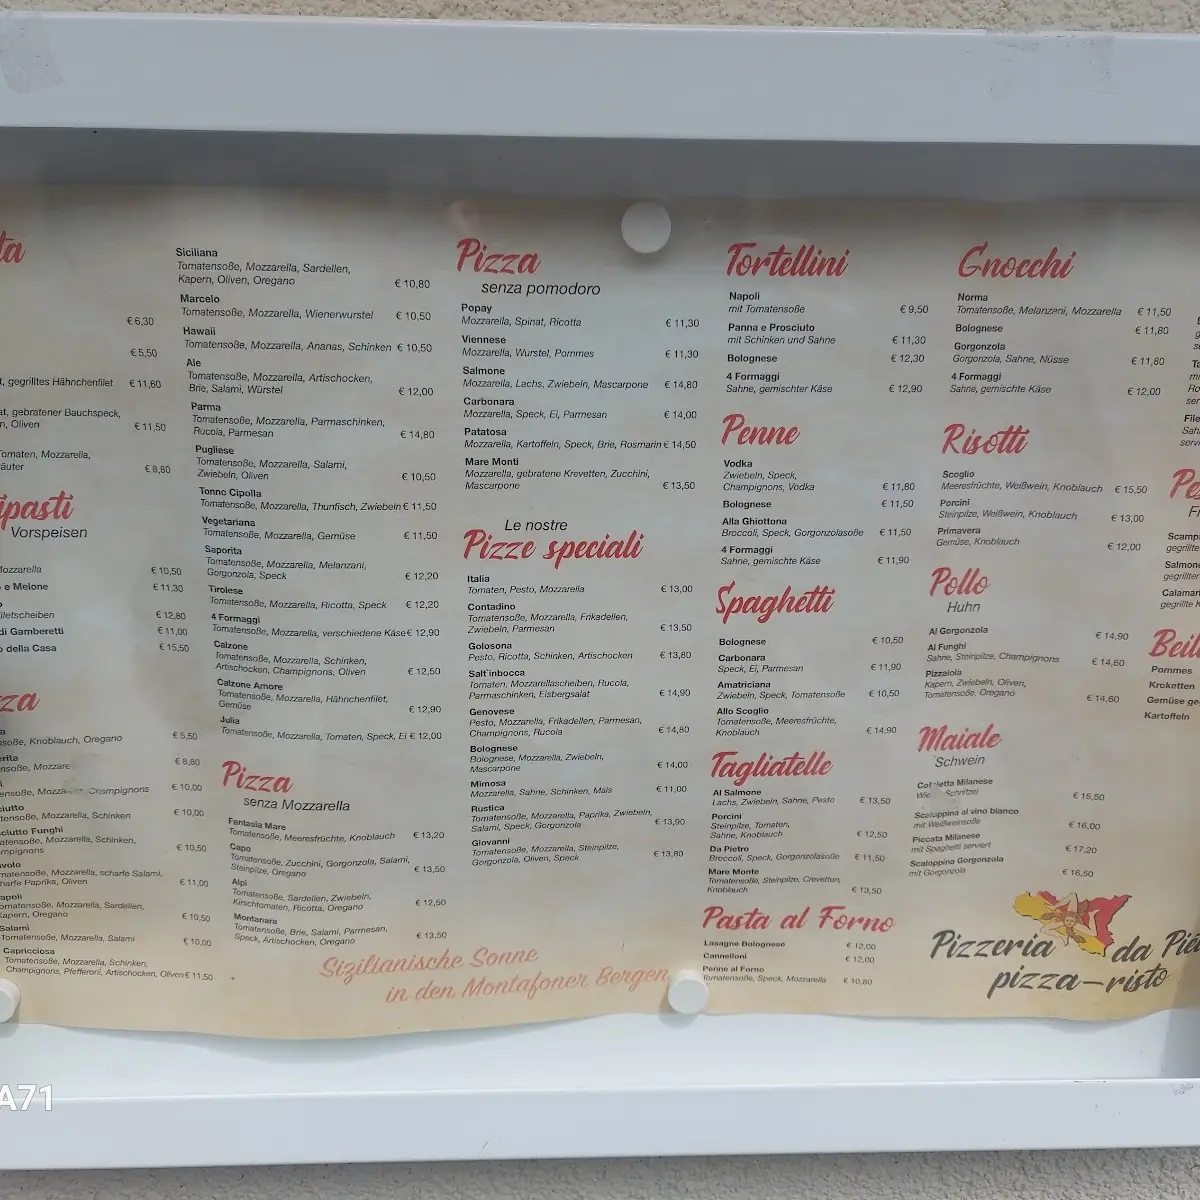 ta
€ 6,30
€ 5,50
t, gegrilltes Hähnchenfilet € 11,60
at, gebratener Bauchspeck,
n, Oliven € 11,50
omaten, Mozzarella,
räuter € 8,80
ipasti
Vorspeisen
Mozzarella € 10,50
o e Melone € 11,30
o
filetscheiben € 12,80
di Gamberetti € 11,00
o della Casa € 15,50
zza
a
nsoße, Knoblauch, Oregano € 5,50
erita
nsoße, Mozzare € 8,80
i
ensoße, Mozzarella, Champignons € 10,00
ciutto
atensoße, Mozzarella, Schinken € 10,00
ciutto Funghi
atensoße, Mozzarella, Schinken,
mpignons € 10,50
avolo
matensoße, Mozzarella, scharfe Salami,
harfe Paprika, Oliven € 11,00
apoli
omatensoße, Mozzarella, Sardellen,
Kapern, Oregano € 10,50
Salami
Tomatensoße, Mozzarella, Salami € 10,00
Capricciosa
Tomatensoße, Mozzarella, Schinken,
Champignons, Pfefferoni, Artischocken, Oliven € 11,50
Siciliana
Tomatensoße, Mozzarella, Sardellen,
Kapern, Oliven, Oregano € 10,80
Marcelo
Tomatensoße, Mozzarella, Wienerwurstel € 10,50
Hawaii
Tomatensoße, Mozzarella, Ananas, Schinken € 10,50
Ale
Tomatensoße, Mozzarella, Artischocken,
Brie, Salami, Würstel € 12,00
Parma
Tomatensoße, Mozzarella, Parmaschinken,
Rucola, Parmesan € 14,80
Pugliese
Tomatensoße, Mozzarella, Salami,
Zwiebeln, Oliven € 10,50
Tonno Cipolla
Tomatensoße, Mozzarella, Thunfisch, Zwiebeln € 11,50
Vegetariana
Tomatensoße, Mozzarella, Gemüse € 11,50
Saporita
Tomatensoße, Mozzarella, Melanzani,
Gorgonzola, Speck € 12,20
Tirolese
Tomatensoße, Mozzarella, Ricotta, Speck € 12,20
4 Formaggi
Tomatensoße, Mozzarella, verschiedene Käse € 12,90
Calzone
Tomatensoße, Mozzarella, Schinken,
Artischocken, Champignons, Oliven € 12,50
Calzone Amore
Tomatensoße, Mozzarella, Hähnchenfilet,
Gemüse € 12,90
Julia
Tomatensoße, Mozzarella, Tomaten, Speck, Ei € 12,00
Pizza
senza Mozzarella
Fantasia Mare
Tomatensoße, Meeresfrüchte, Knoblauch € 13,20
Capo
Tomatensoße, Zucchini, Gorgonzola, Salami,
Steinpilze, Oregano € 13,50
Alpi
Tomatensoße, Sardellen, Zwiebeln,
Kirschtomaten, Ricotta, Oregano € 12,50
Montanara
Tomatensoße, Brie, Salami, Parmesan,
Speck, Artischocken, Oregano € 13,50
Pizza
senza pomodoro
Popay
Mozzarella, Spinat, Ricotta € 11,30
Viennese
Mozzarella, Wurstel, Pommes € 11,30
Salmone
Mozzarella, Lachs, Zwiebeln, Mascarpone € 14,80
Carbonara
Mozzarella, Speck, Ei, Parmesan € 14,00
Patatosa
Mozzarella, Kartoffeln, Speck, Brie, Rosmarin € 14,50
Mare Monti
Mozzarella, gebratene Krevetten, Zucchini,
Mascarpone € 13,50
Le nostre
Pizze speciali
Italia
Tomaten, Pesto, Mozzarella € 13,00
Contadino
Tomatensoße, Mozzarella, Frikadellen,
Zwiebeln, Parmesan € 13,50
Golosona
Pesto, Ricotta, Schinken, Artischocken € 13,80
Salt'inbocca
Tomaten, Mozzarellascheiben, Rucola,
Parmaschinken, Eisbergsalat € 14,90
Genovese
Pesto, Mozzarella, Frikadellen, Parmesan,
Champignons, Rucola € 14,80
Bolognese
Bolognese, Mozzarella, Zwiebeln,
Mascarpone € 14,00
Mimosa
Mozzarella, Sahne, Schinken, Mais € 11,00
Rustica
Tomatensoße, Mozzarella, Paprika, Zwiebeln,
Salami, Speck, Gorgonzola € 13,90
Giovanni
Tomatensoße, Mozzarella, Steinpilze,
Gorgonzola, Oliven, Speck € 13,80
Sizilianische Sonne
in den Montafoner Bergen
Tortellini
Napoli
mit Tomatensoße € 9,50
Panna e Prosciuto
mit Schinken und Sahne € 11,30
Bolognese € 12,30
4 Formaggi
Sahne, gemischter Käse € 12,90
Penne
Vodka
Zwiebeln, Speck,
Champignons, Vodka € 11,80
Bolognese € 11,50
Alla Ghiottona
Broccoli, Speck, Gorgonzolasoße € 11,50
4 Formaggi
Sahne, gemischte Käse € 11,90
Spaghetti
Bolognese € 10,50
Carbonara
Speck, Ei, Parmesan € 11,90
Amatriciana
Zwiebeln, Speck, Tomatensoße € 10,50
Allo Scoglio
Tomatensoße, Meeresfrüchte,
Knoblauch € 14,90
Tagliatelle
Al Salmone
Lachs, Zwiebeln, Sahne, Pesto € 13,50
Porcini
Steinpilze, Tomaten,
Sahne, Knoblauch € 12,50
Da Pietro
Broccoli, Speck, Gorgonzolasoße € 11,50
Mare Monte
Tomatensoße, Steinpilze, Crevetten,
Knoblauch € 13,50
Pasta al Forno
Lasagne Bolognese € 12,00
Cannelloni € 12,00
Penne al Forno
Tomatensoße, Speck, Mozzarella € 10,80
Gnocchi
Norma
Tomatensoße, Melanzani, Mozzarella € 11,50
Bolognese € 11,80
Gorgonzola
Gorgonzola, Sahne, Nüsse € 11,80
4 Formaggi
Sahne, gemischte Käse € 12,00
Risotti
Scoglio
Meeresfrüchte, Weißwein, Knoblauch € 15,50
Porcini
Steinpilze, Weißwein, Knoblauch € 13,00
Primavera
Gemüse, Knoblauch € 12,00
Pollo
Huhn
Al Gorgonzola € 14,90
Al Funghi
Sahne, Steinpilze, Champignons € 14,60
Pizzaiola
Kapern, Zwiebeln, Oliven,
Tomatensoße, Oregano € 14,60
Maiale
Schwein
Cotoletta Milanese
Wie Schnitzel € 15,50
Scaloppina al vino bianco
mit Weißweinsoße € 16,00
Piccata Milanese
mit Spaghetti serviert € 17,20
Scaloppina Gorgonzola
mit Gorgonzola € 16,50
Pizzeria da Piet
pizza-risto
Ta
mi
Ro
ser
File
Sah
servi
Pes
Fi
Scampi
gegrillte
Salmone
gegrillter
Calamar
gegrillte K
Beil
Pommes
Kroketten
Gemüse ge
Kartoffeln
A71